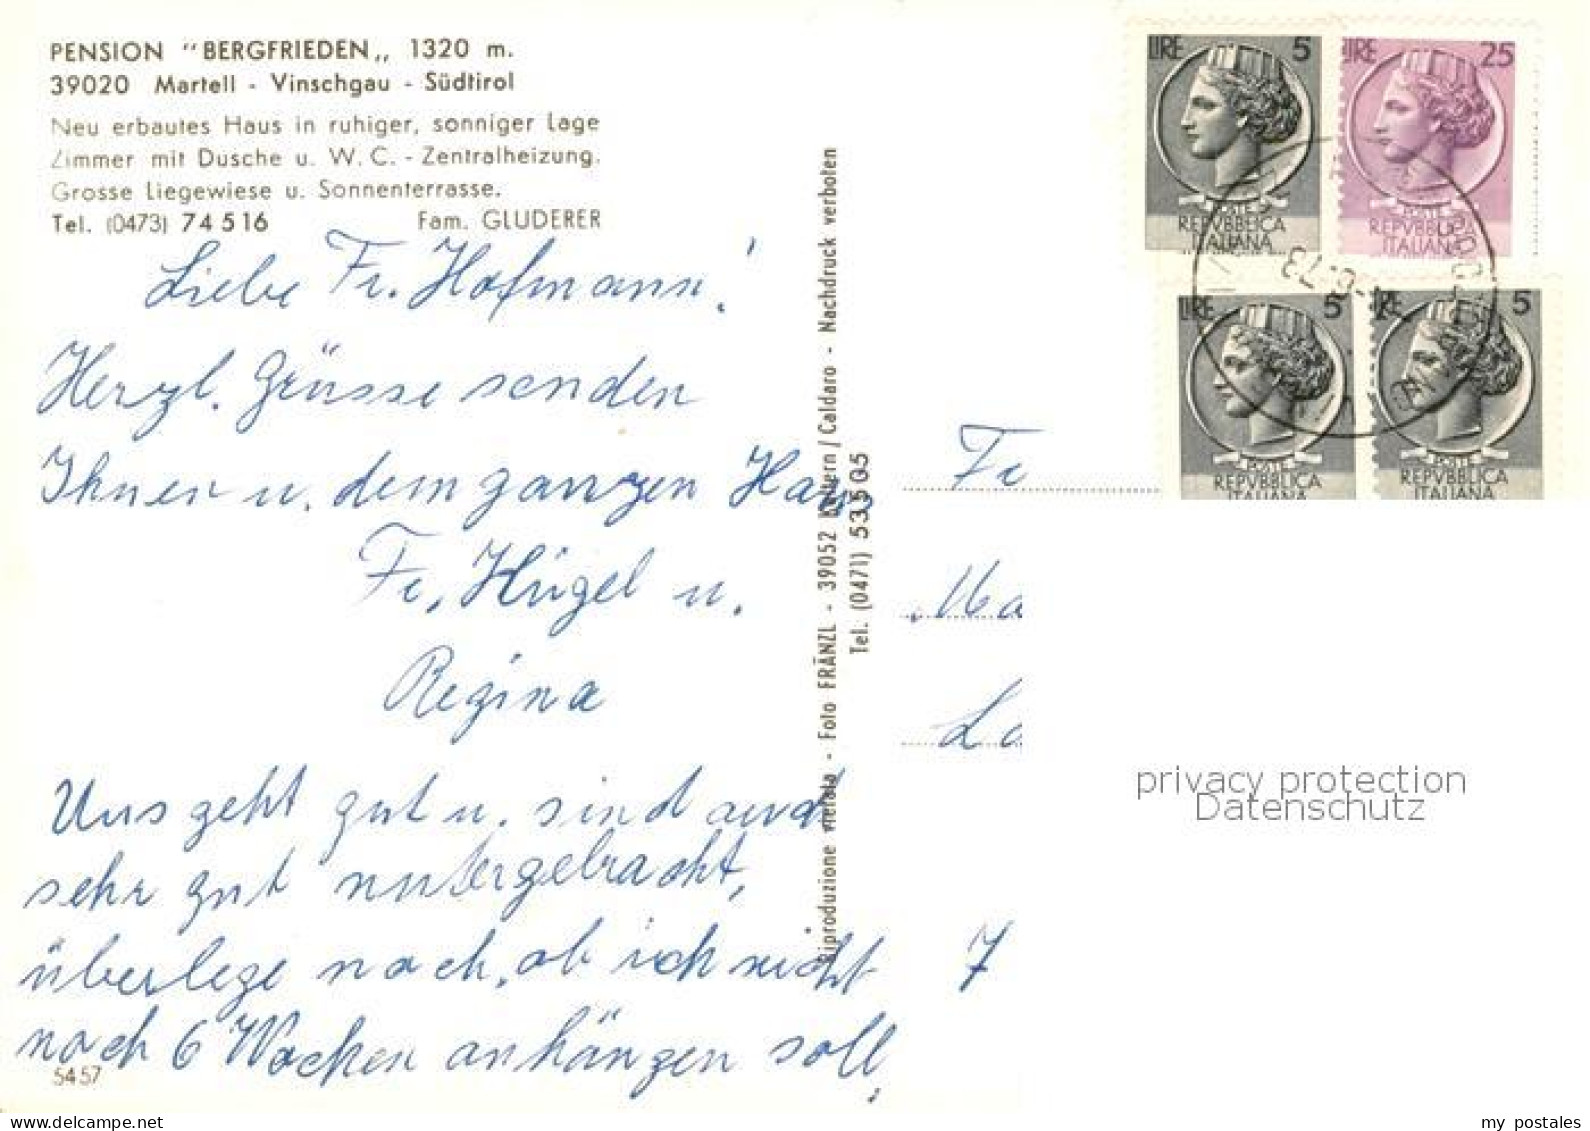 PENSION "BERGFRIEDEN„ 1320 m.
39020 Martell - Vinschgau - Südtirol
Neu erbautes Haus in ruhiger, sonniger Lage
Zimmer mit Dusche u. W. C. - Zentralheizung.
Grosse Liegewiese u. Sonnenterrasse.
Tel. (0473) 74 5 16 Fam. GLUDERER
Liebe Fr. Hofmann!
Herzl. Grüsse senden
Ihnen u. dem ganzen Haus
Fr. Hügel u.
Regina
Uns geht gut u. sind auch
sehr gut untergebracht,
überlege noch, ob ich nicht
noch 6 Wochen anhängen soll,
5457
Riproduzione vietata - Foto FRÄNZL - 39052 Kaltern / Caldaro - Nachdruck verboten
Tel. (0471) 53 5 05
LIRE 5
POSTE
REPVBBLICA
ITALIANA
LIRE 25
POSTE
REPVBBLICA
ITALIANA
LIRE 5
POSTE
REPVBBLICA
ITALIANA
LIRE 5
POSTE
REPVBBLICA
ITALIANA
Fr
Ma
La
7
privacy protection
Datenschutz
my postales